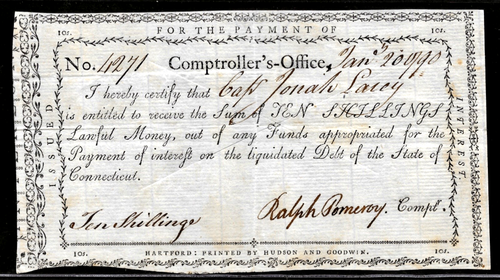 10s. FOR THE PAYMENT OF 10s.
No. 4271 Comptroller's-Office, Janʸ 20 1790
I hereby certify that Capt Jonah Lacey
is entitled to receive the Sum of TEN SHILLINGS
Lawful Money, out of any Funds appropriated for the
Payment of interest on the liquidated Debt of the State of
Connecticut.
Ten Shillings Ralph Pomeroy. Compt.
10s. HARTFORD: PRINTED BY HUDSON AND GOODWIN. 10s.
ISSUED
INTEREST.